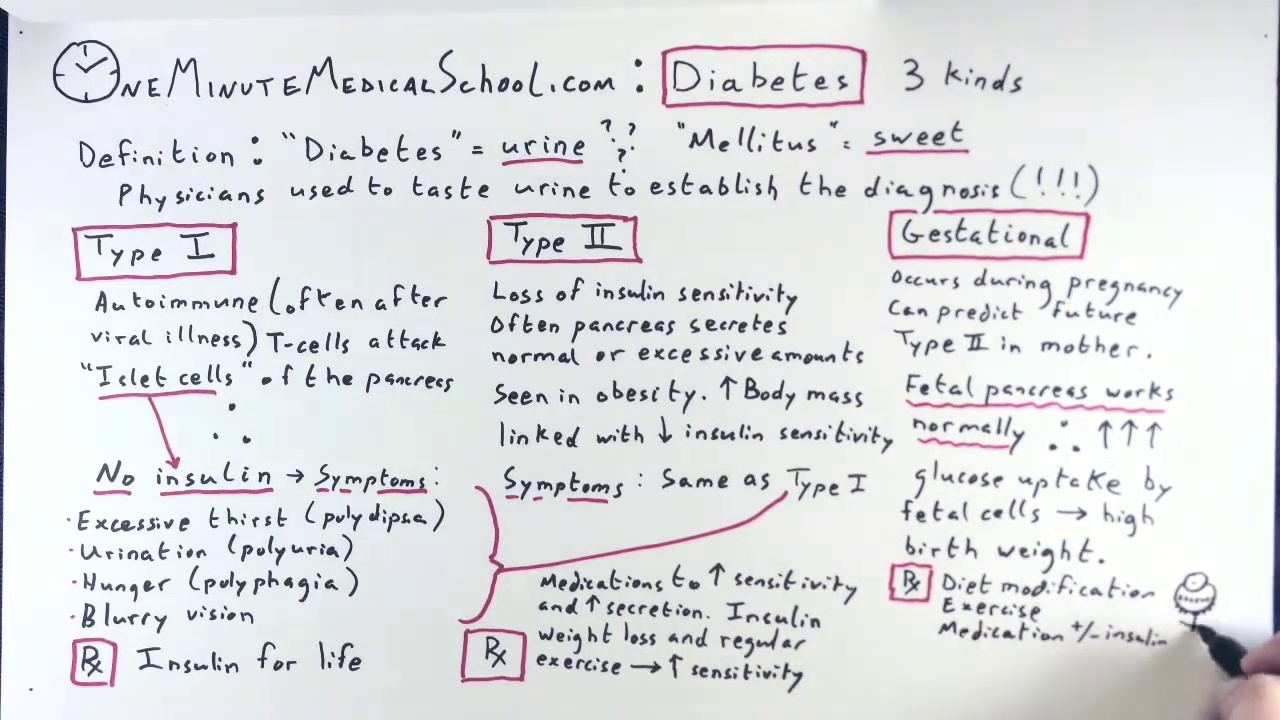 OneMinuteMedicalSchool.com : Diabetes 3 kinds
Definition : "Diabetes" = urine ? ? ? "Mellitus" = sweet
Physicians used to taste urine to establish the diagnosis (!!!)
Type I
Autoimmune (often after
viral illness) T-cells attack
"Islet cells" of the pancreas
∴
No insulin → Symptoms :
· Excessive thirst (polydipsia)
· Urination (polyuria)
· Hunger (polyphagia)
· Blurry vision
Rx Insulin for life
Type II
Loss of insulin sensitivity
Often pancreas secretes
normal or excessive amounts
Seen in obesity. ↑ Body mass
linked with ↓ insulin sensitivity
Symptoms : Same as Type I
Rx
Medications to ↑ sensitivity
and ↑ secretion. Insulin
weight loss and regular
exercise → ↑ sensitivity
Gestational
Occurs during pregnancy
Can predict future
Type II in mother.
Fetal pancreas works
normally ∴ ↑↑↑
glucose uptake by
fetal cells → high
birth weight.
Rx Diet modification
Exercise
Medication +/- insulin